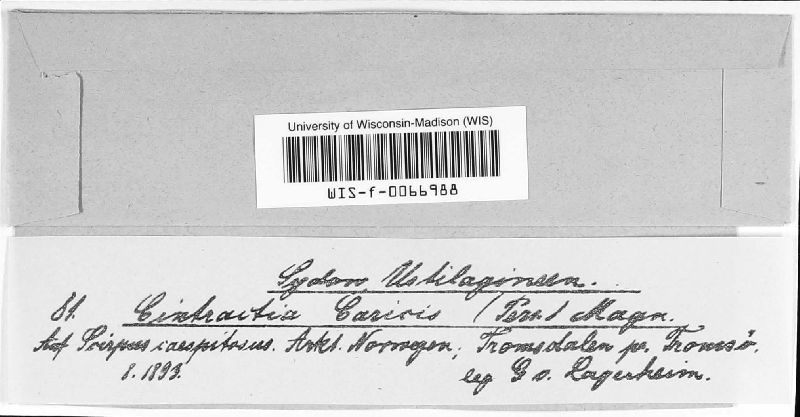 University of Wisconsin-Madison (WIS)
WIS-f-0066988
Sydow, Ustilagineen.
81. Cintractia Caricis (Pers.) Magn.
Auf Scirpus caespitosus. Arkt. Norwegen; Tromsdalen pr. Tromsö.
8. 1893. leg G v. Lagerheim.